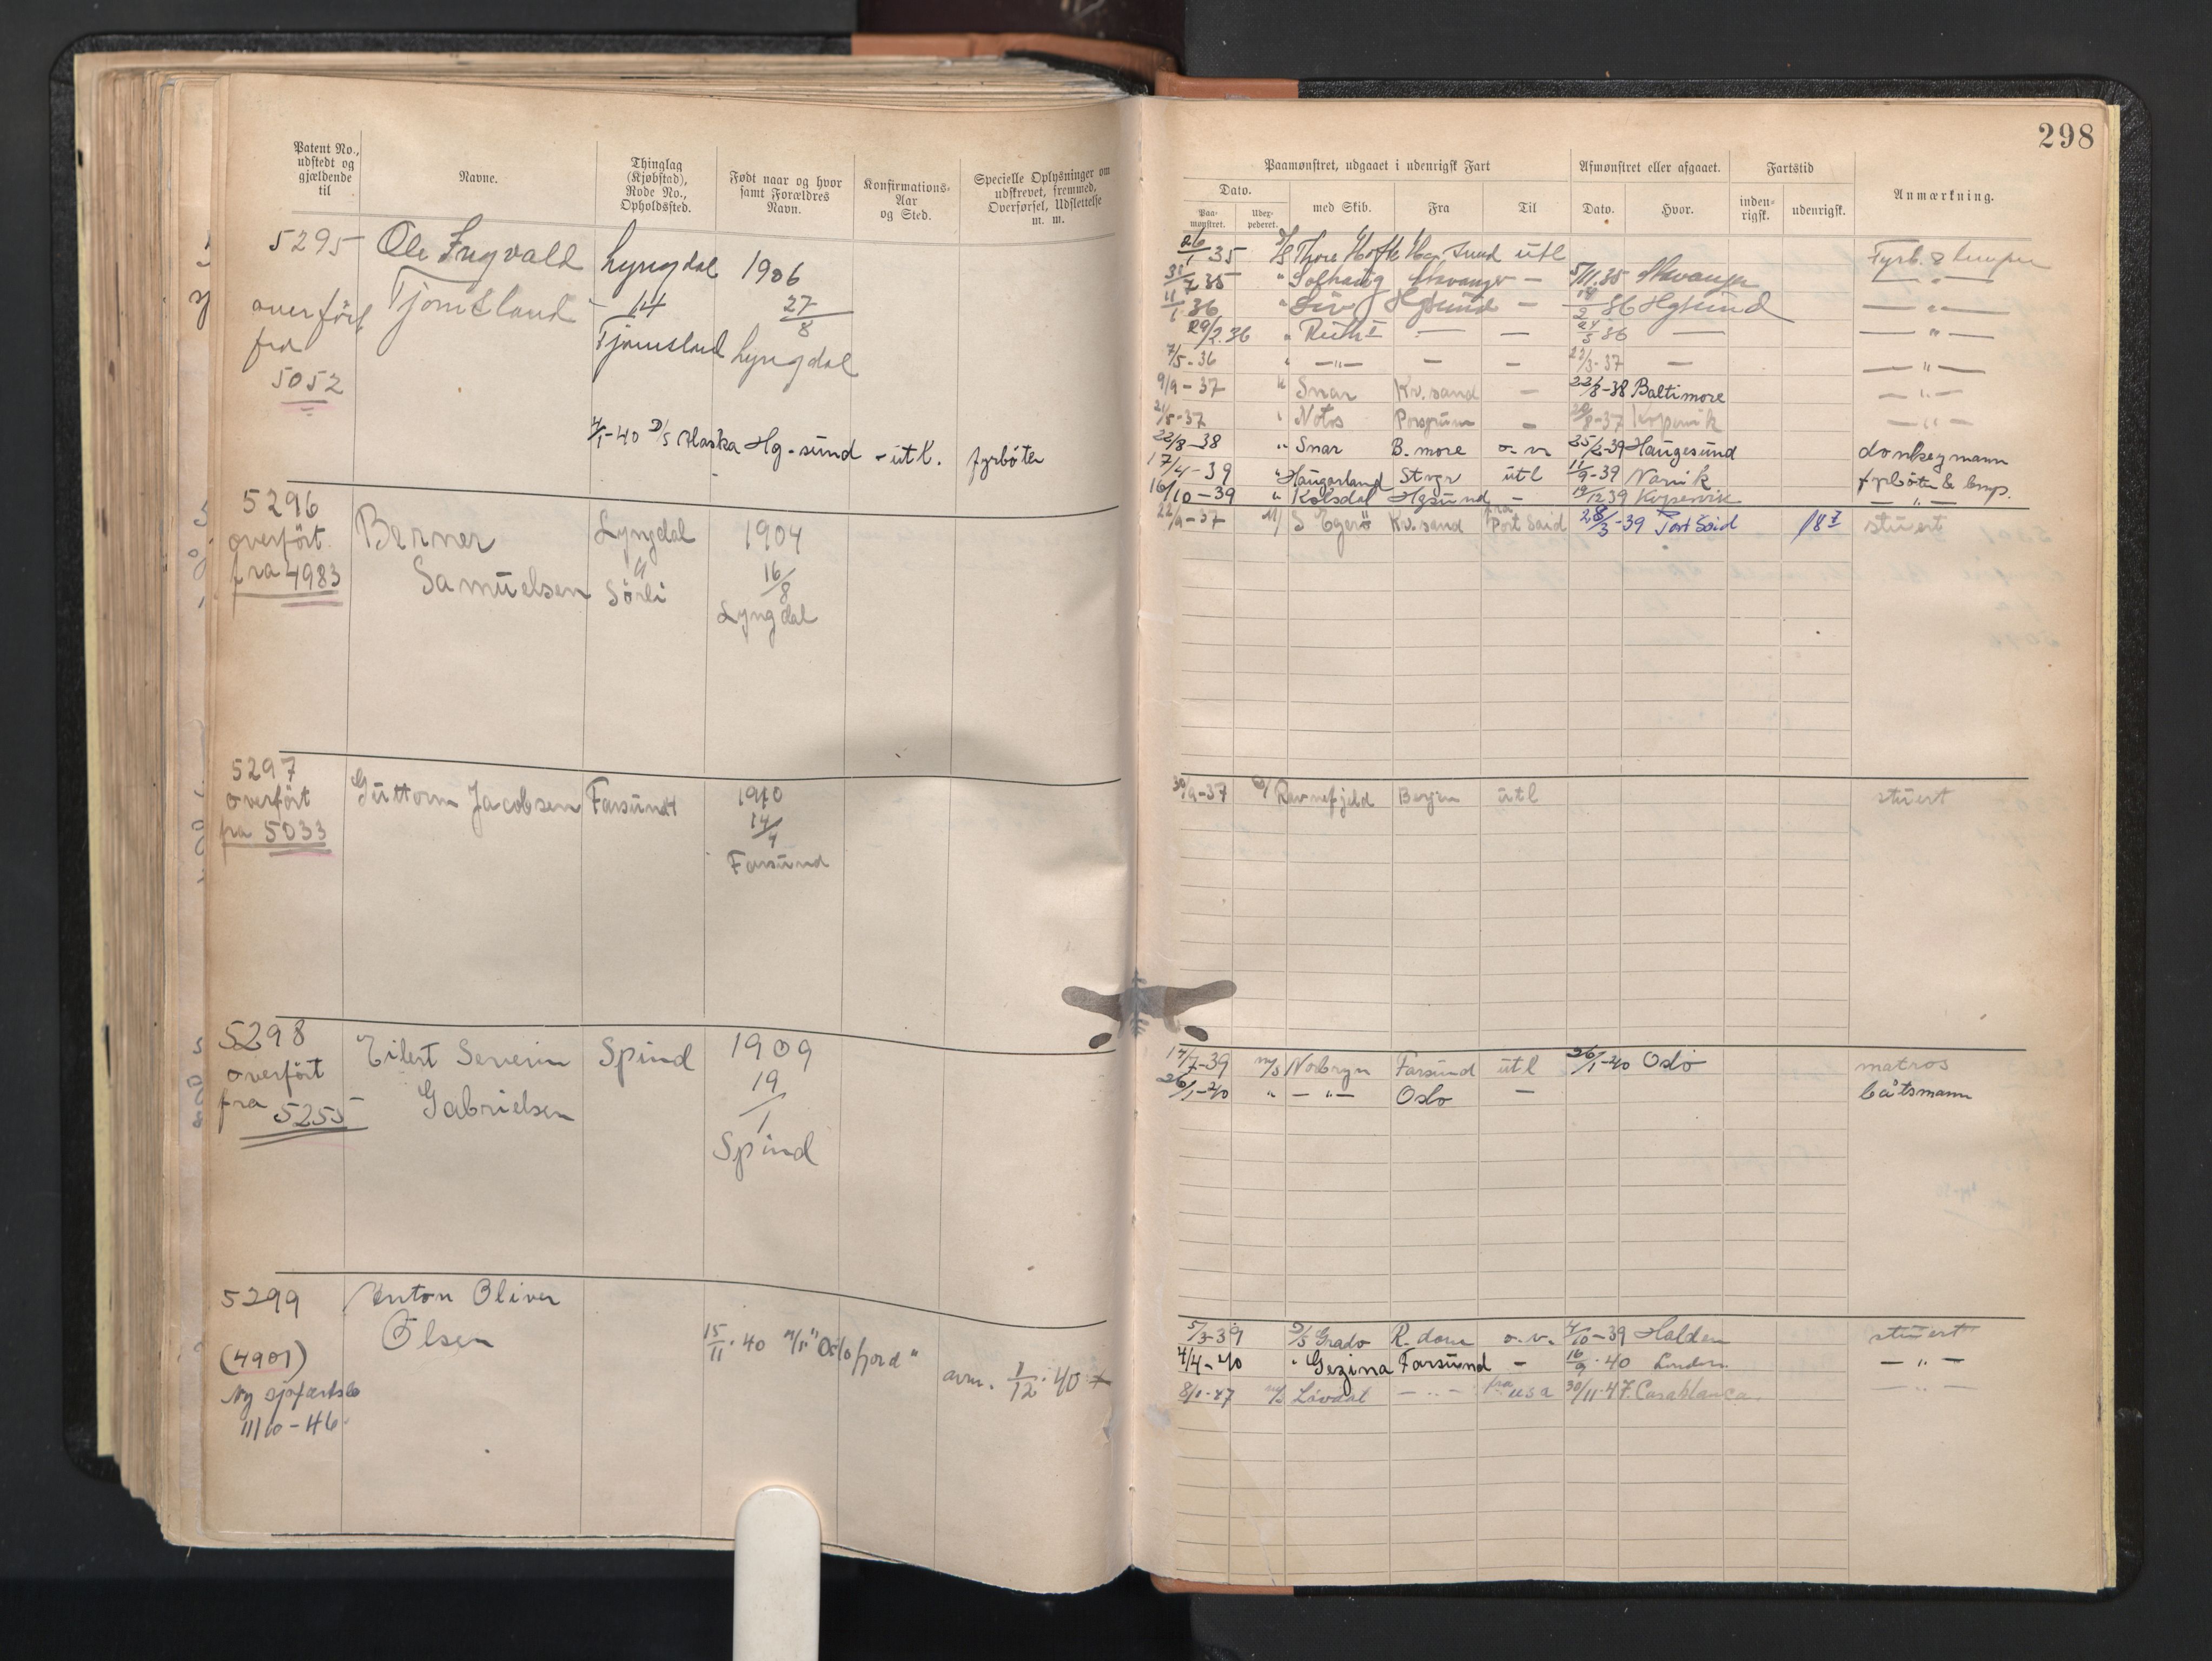 298
Patent No., udstedt og gjældende til
Navne.
Thinglag (Kjøbstad), Rode No., Opholdssted.
Født naar og hvor samt Forældres Navn.
Konfirmations-Aar og Sted.
Specielle Oplysninger om udskrevet, fremmed, Overførsel, Udslettelse m. m.
Paamønstret, udgaaet i udenrigsk Fart
Afmønstret eller afgaaet.
Fartstid
Anmærkning.
Dato.
med Skib.
Fra
Til
Dato.
Hvor.
inden-rigsk.
udenrigsk.
Paa-mønstret.
5295 Ole Ingvald Lyngdal 1906
overført Tjomsland 14 27/8
fra Tjomsland Lyngdal
5052
4/1-40 D/S Alaska Hg-sund - utl. fyrbøter
26/1 35 D/S Thore Hg.sund utl Fyrb. & lemper
" Solhaug Stavanger — 5/11.35 Stavanger — " —
11/1 36 " Liv Hgsund — 86 Hgsund — " —
29/2.36 " Ruth I — — 24/5 36 — — " —
7/5-36 " — " — — — 23/3-37 — — " —
9/9-37 " Snar Kr.sand — 22/8-38 Baltimore — " —
21/5-37 " Notos Porsgrunn — 20/8-37 Kopervik — " —
22/8-38 " Snar B.more o.v. 25/2-39 Haugesund donkeymann
17/4-39 " Haugarland Stvgr utl 11/9-39 Narvik fyrbøter & lemp.
16/10-39 " Kolsdal Hgsund — 19/12 39 Kopervik — " —
5296 Berner Lyngdal 1904
overført Samuelsen 9 16/8
fra 4983 Sörli Lyngdal
22/9-37 M/S Egerö Kr.sand fra Port Said 28/3-39 Port Said 18 7 stuert
5297 Guttorm Jacobsen Farsund 1910
overført 14/4
fra 5033 Farsund
30/9-37 D/ Ravnefjeld Bergen utl stuert
5298 Eilert Severin Spind 1909
overført Gabrielsen 19/1
fra 5255 Spind
14/7-39 m/s Norbryn Farsund utl 26/1-40 Oslo matros
26/1-40 " — " — Oslo — båtsmann
5299 Anton Oliver
Olsen
(4901)
Ny sjøfartsb
11/10-46
15/11.40 M/S "Oslofjord" avm. 1/12.40
5/3-39 D/S Grado R.dam o.v. 4/10-39 Halden stuert
4/4-40 " Gezina Farsund — 16/9.40 London — " —
8/1-47 m/s Lövdal — " — fra usa 30/11.47. Casablanca. — " —